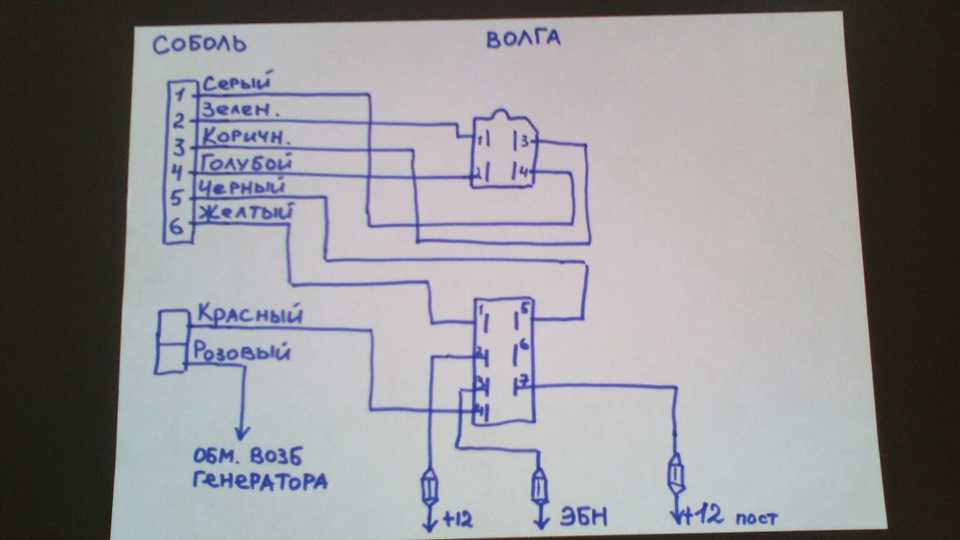 СОБОЛЬ
ВОЛГА
1 Серый
2 Зелен.
3 Коричн.
4 Голубой
5 Черный
6 Желтый
1 3
2 4
Красный
Розовый
1 5
2 6
3 7
4
ОБМ. ВОЗБ
ГЕНЕРАТОРА
+12
ЭБН
+12 пост